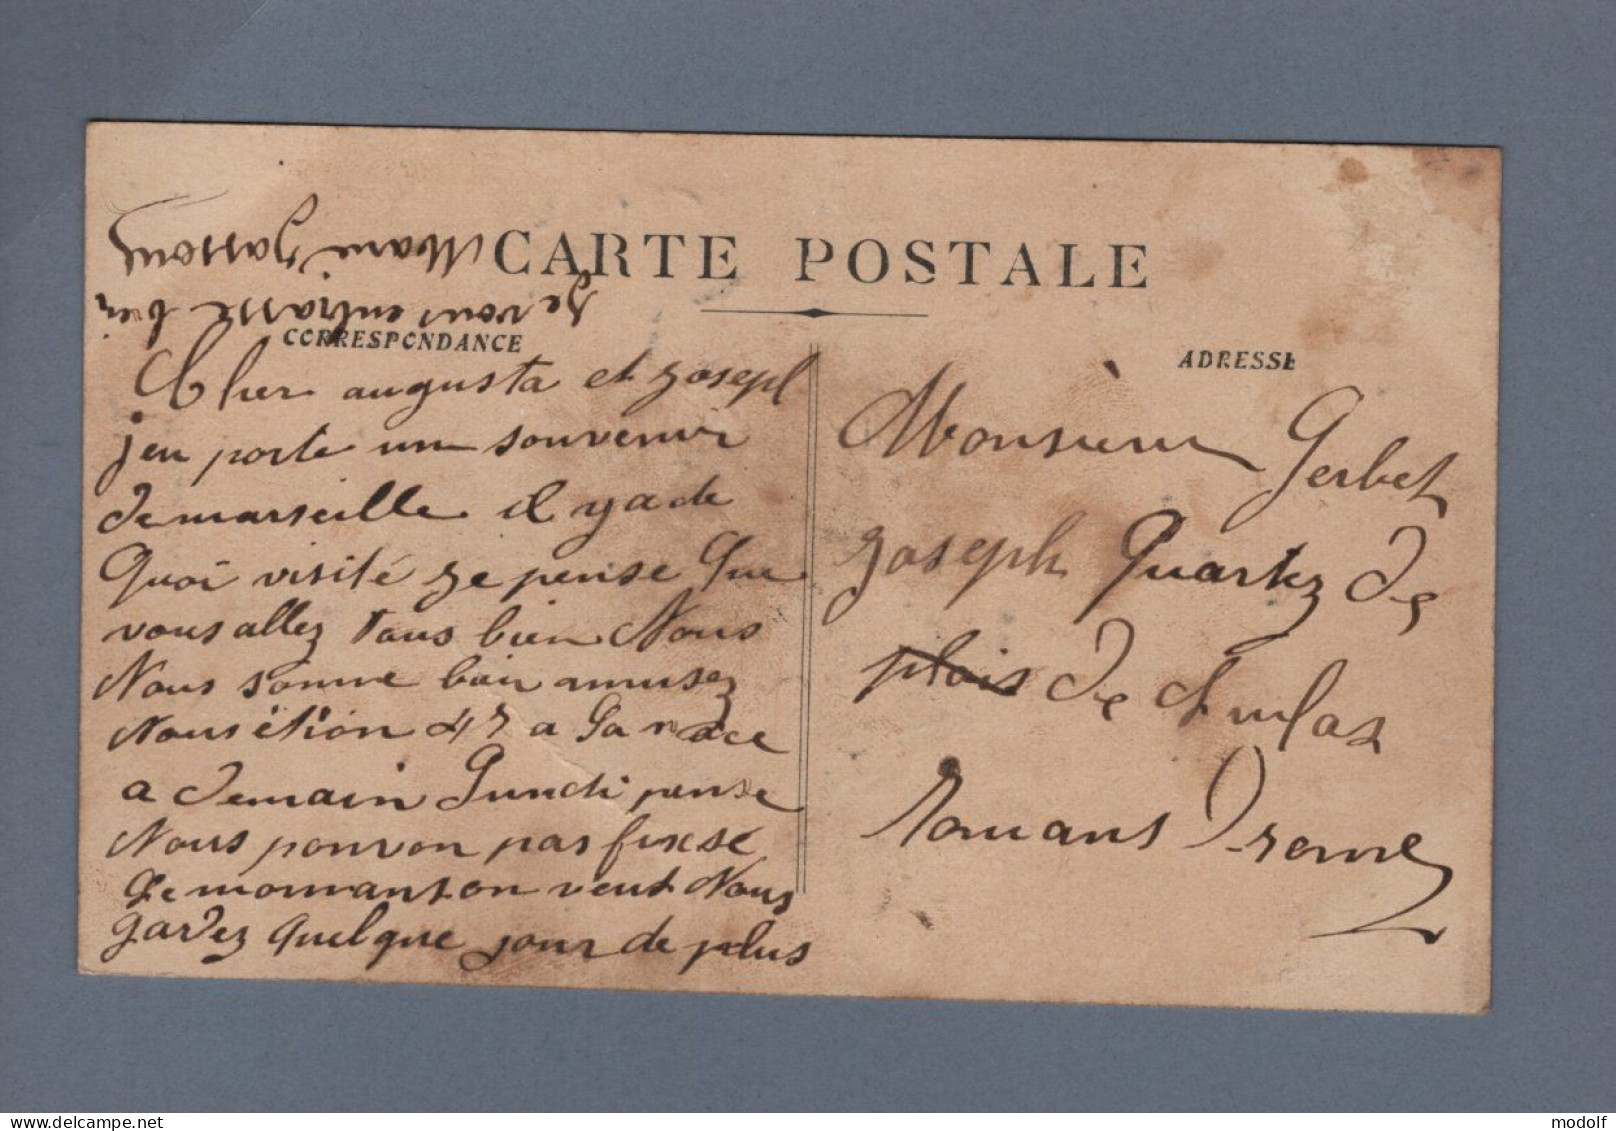 CARTE POSTALE
CORRESPONDANCE
Cher augusta et Joseph
jeu porte un souvenir
de marseille il y a de
Quoi visité Je pense que
vous allez tous bien Nous
Nous somme bien amusez
Nous étion 45 a la
a demain Lundi pense
Nous pouvon pas fixsé
Le moman on veut Nous
gardez quelque jour de plus
Je vous embrasse bien
Marie
ADRESSE
Monsieur Gerbet
Joseph Quartez de
plais de
Romans Drome
www.delcampe.net
modolf